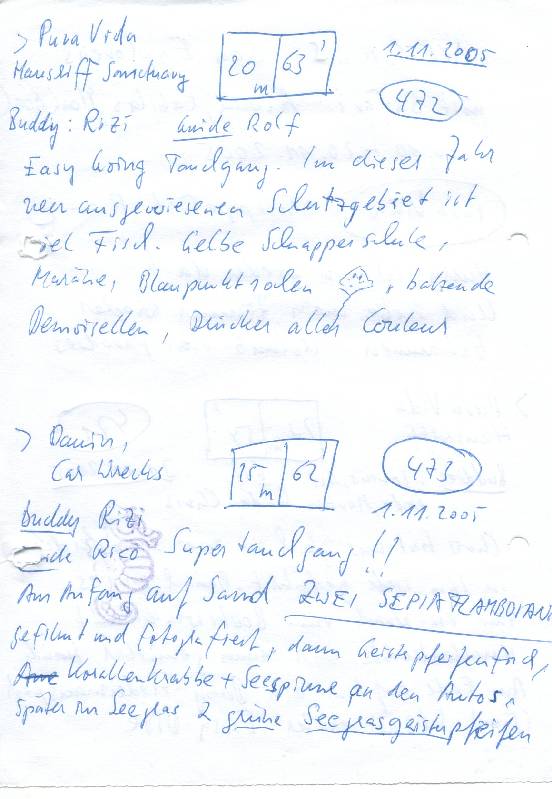 > Pura Vida
Hausriff Sanctuary
20 m | 63'
1.11.2005
472
Buddy: Rizi Guide Rolf
Easy Going Tauchgang. Im dieses Jahr
neu ausgewiesenen Schutzgebiet ist
viel Fisch. Gelbe Schnapperschule,
Muräne, Blaupunktrochen, balzende
Demoisellen, Drücker aller Couleur
> Dauin,
Car Wrecks
15 m | 62'
473
1.11.2005
Buddy Rizi
Guide Rico Supertauchgang!!
Am Anfang auf Sand ZWEI SEPIA FLAMBOIANT
gefilmt und fotografiert, dann Geisterpfeifenfisch,
Korallenkrabbe + Seespinne an den Autos,
später im Seegras 2 grüne Seegrasgeisterpfeifen